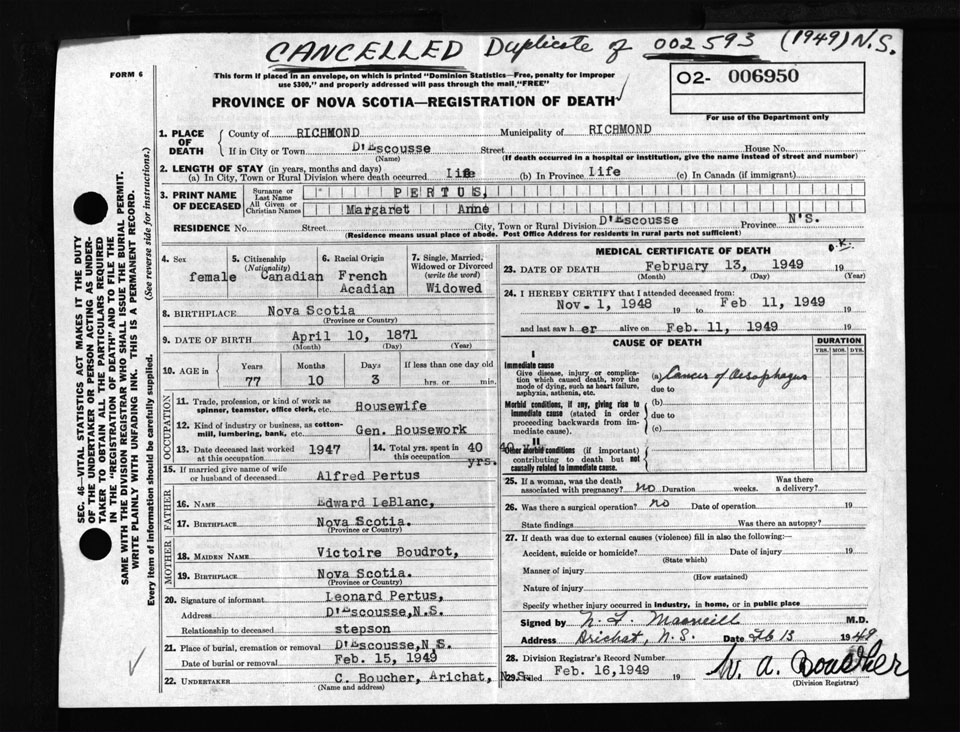 CANCELLED Duplicate of 002593 (1949) N.S.
FORM 6
This form if placed in an envelope, on which is printed "Dominion Statistics—Free, penalty for improper
use $300," and properly addressed will pass through the mail "FREE"
O2- 006950
For use of the Department only
PROVINCE OF NOVA SCOTIA—REGISTRATION OF DEATH
1. PLACE OF DEATH
County of RICHMOND Municipality of RICHMOND
If in City or Town D'Escousse Street House No.
(Name) (If death occurred in a hospital or institution, give the name instead of street and number)
2. LENGTH OF STAY (in years, months and days)
(a) In City, Town or Rural Division where death occurred Life (b) In Province Life (c) In Canada (if immigrant)
3. PRINT NAME OF DECEASED
Surname or Last Name PERTUS,
All Given or Christian Names Margaret Anne
RESIDENCE No. Street City, Town or Rural Division D'Escousse Province N'S.
(Residence means usual place of abode. Post Office Address for residents in rural parts not sufficient)
4. Sex female
5. Citizenship (Nationality) Canadian
6. Racial Origin French Acadian
7. Single, Married, Widowed or Divorced (write the word) Widowed
8. BIRTHPLACE Nova Scotia
(Province or Country)
9. DATE OF BIRTH April 10, 1871
(Month) (Day) (Year)
10. AGE in Years Months Days If less than one day old
77 10 3 hrs. or min.
OCCUPATION
11. Trade, profession, or kind of work as
spinner, teamster, office clerk, etc. Housewife
12. Kind of industry or business, as cotton-
mill, lumbering, bank, etc. Gen. Housework
13. Date deceased last worked at this occupation 1947
14. Total yrs. spent in this occupation 40 yrs.
15. If married give name of wife
or husband of deceased Alfred Pertus
FATHER
16. NAME Edward LeBlanc,
17. BIRTHPLACE Nova Scotia.
(Province or Country)
MOTHER
18. MAIDEN NAME Victoire Boudrot,
19. BIRTHPLACE Nova Scotia.
(Province or Country)
20. Signature of informant Leonard Pertus,
Address D'Escousse,N.S.
Relationship to deceased stepson
21. Place of burial, cremation or removal D'Escousse,N.S.
Date of burial or removal Feb. 15, 1949
22. UNDERTAKER C. Boucher, Arichat, N.S.
(Name and address)
MEDICAL CERTIFICATE OF DEATH
O.K.
23. DATE OF DEATH February 13, 1949 19
(Month) (Day) (Year)
24. I HEREBY CERTIFY that I attended deceased from:
Nov. 1, 1948 19 to Feb 11, 1949 19
and last saw h er alive on Feb. 11, 1949 19
CAUSE OF DEATH
DURATION
YRS. MOS. DYS.
I
Immediate cause
Give disease, injury or complica-
tion which caused death, NOT the
mode of dying, such as heart failure,
asphyxia, asthenia, etc.
(a) Cancer of Oesophagus
due to
Morbid conditions, if any, giving rise to
immediate cause (stated in order
proceeding backwards from im-
mediate cause).
(b)
due to
(c)
II
Other morbid conditions (if important)
contributing to death but not
causally related to immediate cause.
25. If a woman, was the death
associated with pregnancy? no Duration weeks. Was there a delivery?
26. Was there a surgical operation? no Date of operation 19
State findings Was there an autopsy?
27. If death was due to external causes (violence) fill in also the following:—
Accident, suicide or homicide? Date of injury 19
(State which)
Manner of injury
(How sustained)
Nature of injury
Specify whether injury occurred in industry, in home, or in public place
Signed by M.D.
Address Arichat, N.S. Date Feb 13 1949
28. Division Registrar's Record Number
29. Filed Feb. 16,1949 19 W. A. Boucher
(Division Registrar)
SEC. 46—VITAL STATISTICS ACT MAKES IT THE DUTY
OF THE UNDERTAKER OR PERSON ACTING AS UNDER-
TAKER TO OBTAIN ALL THE PARTICULARS REQUIRED
IN THE "REGISTRATION OF DEATH" AND TO FILE THE
SAME WITH THE DIVISION REGISTRAR WHO SHALL ISSUE THE BURIAL PERMIT.
WRITE PLAINLY WITH UNFADING INK. THIS IS A PERMANENT RECORD.
Every item of information should be carefully supplied. (See reverse side for instructions.)